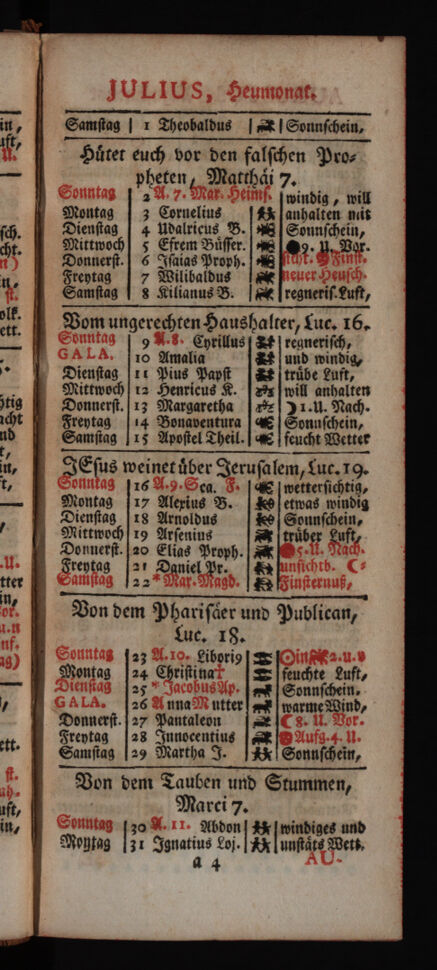 JULIUS, Heumonat.
Samstag | 1 Theobaldus | Sonnschein,
Hütet euch vor den falschen Pro-
pheten, Matthäi 7.
Sonntag 2 A. 7. Mar. Heims. windig, will
Montag 3 Cornelius anhalten mit
Dienstag 4 Udalricus B. Sonnschein,
Mittwoch 5 Efrem Büsser. 9. U. Vor.
Donnerst. 6 Isaias Proph. sicht. Finst.
Freytag 7 Wilibaldus neuer Heusch.
Samstag 8 Kilianus B. regneris. Luft,
Vom ungerechten Haushalter, Luc. 16.
Sonntag 9 A. 8. Cyrillus regnerisch,
GALA. 10 Amalia und windig,
Dienstag 11 Pius Papst trübe Luft,
Mittwoch 12 Henricus K. will anhalten
Donnerst. 13 Margaretha ☽ 1. U. Nach.
Freytag 14 Bonaventura Sonnschein,
Samstag 15 Apostel Theil. feucht Wetter
JEsus weinet über Jerusalem, Luc. 19.
Sonntag 16 A. 9. Sca. F. wettersichtig,
Montag 17 Alexius B. etwas windig
Dienstag 18 Arnoldus Sonnschein,
Mittwoch 19 Arsenius trüber Luft,
Donnerst. 20 Elias Proph. 5. U. Nach.
Freytag 21 Daniel Pr. unsichtb. ☾-
Samstag 22 * Mar. Magd. Finsternuß,
Von dem Pharisäer und Publican,
Luc. 18.
Sonntag 23 A. 10. Libori9 ☉in 2. u. 9
Montag 24 Christina† feuchte Luft,
Dienstag 25 * Jacobus Ap. Sonnschein.
GALA. 26 Anna Mutter warme Wind,
Donnerst. 27 Pantaleon ☾ 8. U. Vor.
Freytag 28 Innocentius Aufg. 4. U.
Samstag 29 Martha J. Sonnschein,
Von dem Tauben und Stummen,
Marci 7.
Sonntag 30 A. 11. Abdon windiges und
Montag 31 Ignatius Loj. unstäts Wett.
a 4 AU-